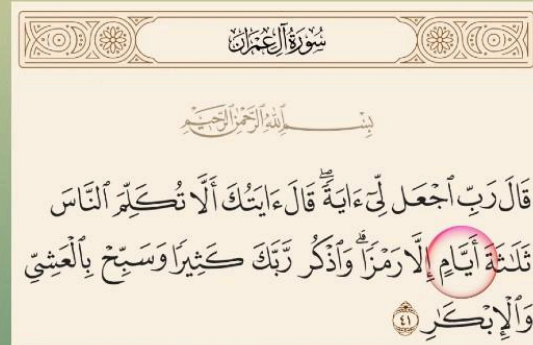 سُورَةُ آلِ عِمۡرَانَ
بِسۡمِ ٱللَّهِ ٱلرَّحۡمَٰنِ ٱلرَّحِيمِ
قَالَ رَبِّ ٱجۡعَل لِّيٓ ءَايَةٗۖ قَالَ ءَايَتُكَ أَلَّا تُكَلِّمَ ٱلنَّاسَ
ثَلَٰثَةَ أَيَّامٍ إِلَّا رَمۡزٗاۗ وَٱذۡكُر رَّبَّكَ كَثِيرٗا وَسَبِّحۡ بِٱلۡعَشِيِّ
وَٱلۡإِبۡكَٰرِ ٤١